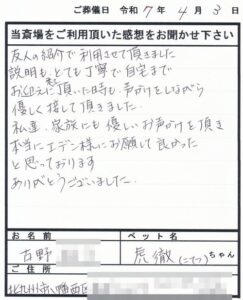 ご葬儀日 令和 7 年 4 月 3 日
当斎場をご利用頂いた感想をお聞かせ下さい
友人の紹介で利用させて頂きました
説明も、とても丁寧で自宅まで
お迎えに頂いた時も、声かけをしながら
優しく接して頂きました。
私達、家族にも優しいお声がけを頂き
本当にエデン様にお願して良かった
と思っております
ありがとうございました。
お名前
ペット名
古野
虎徹(こてつ)ちゃん
ご住所
北九州市八幡西区